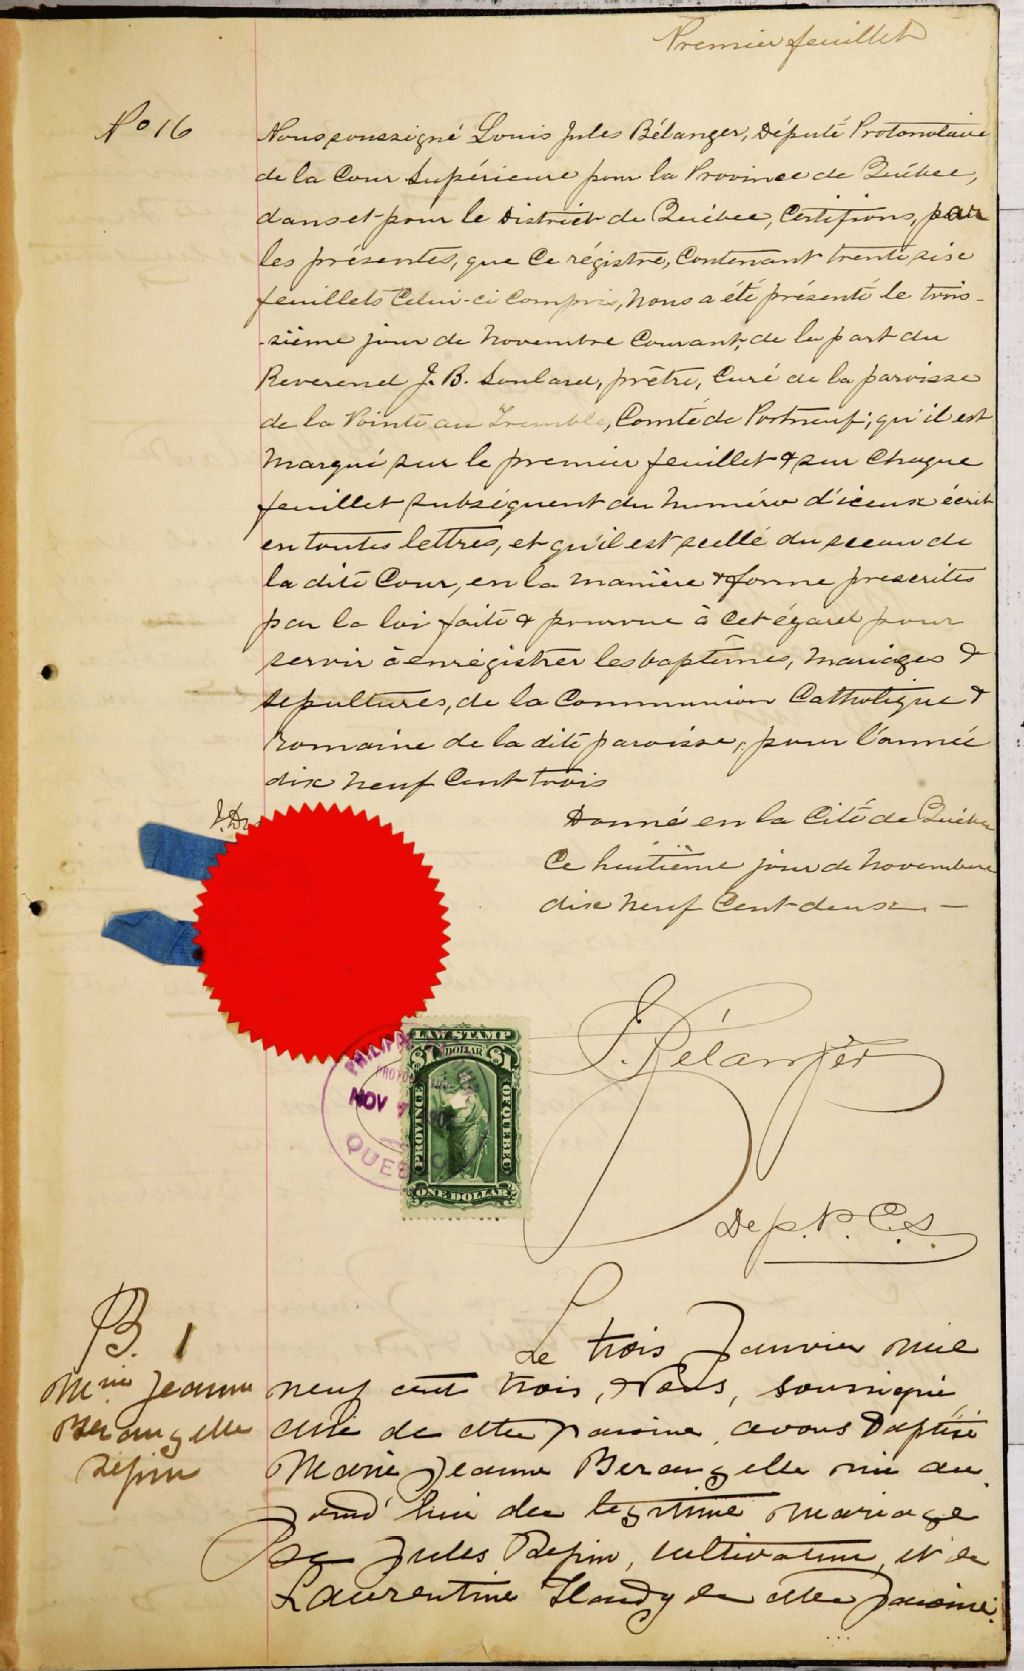 Premier feuillet
No 16
Nous soussigné Louis Jules Bélanger, Député Protonotaire
de la Cour Supérieure pour la Province de Québec,
dans et pour le District de Québec, Certifions, par
les présentes, que ce régistre, Contenant trente six
feuillets Celui-ci Compris, nous a été présenté le trois-
-sième jour de Novembre Courant, de la part du
Reverend J. B. Soulard, prêtre, Curé de la paroisse
de la Pointe au Tremble, Comté de Portneuf; qu'il est
Marqué sur le premier feuillet & sur Chaque
feuillet subséquent du Numéro d'iceux écrit
en toutes lettres, et qu'il est scellé du sceau de
la dite Cour, en la manière & forme prescrites
par la loi faite & pourvue à Cet égard pour
servir à enrégistrer les baptêmes, Mariages &
Sépultures, de la Communion Catholique &
romaine de la dite paroisse, pour l'année
dix Neuf Cent trois
Donné en la Cité de Québec
Ce huitième jour de Novembre
dix Neuf Cent deux. —
LAW STAMP
$1 DOLLAR $1
PROVINCE OF QUEBEC
ONE DOLLAR
NOV
QUEBEC
J. Bélanger
Dep. P. C. S.
B. 1
Mrie Jeanne
Berangelle
Pépin
Le trois Janvier mil
neuf cent trois, Nous, soussigné,
curé de cette paroisse, avons baptisé
Marie Jeanne Berangelle née au
jourd'hui du légitime mariage
de Jules Pepin, cultivateur, et de
Laurentine Hardy de cette paroisse.